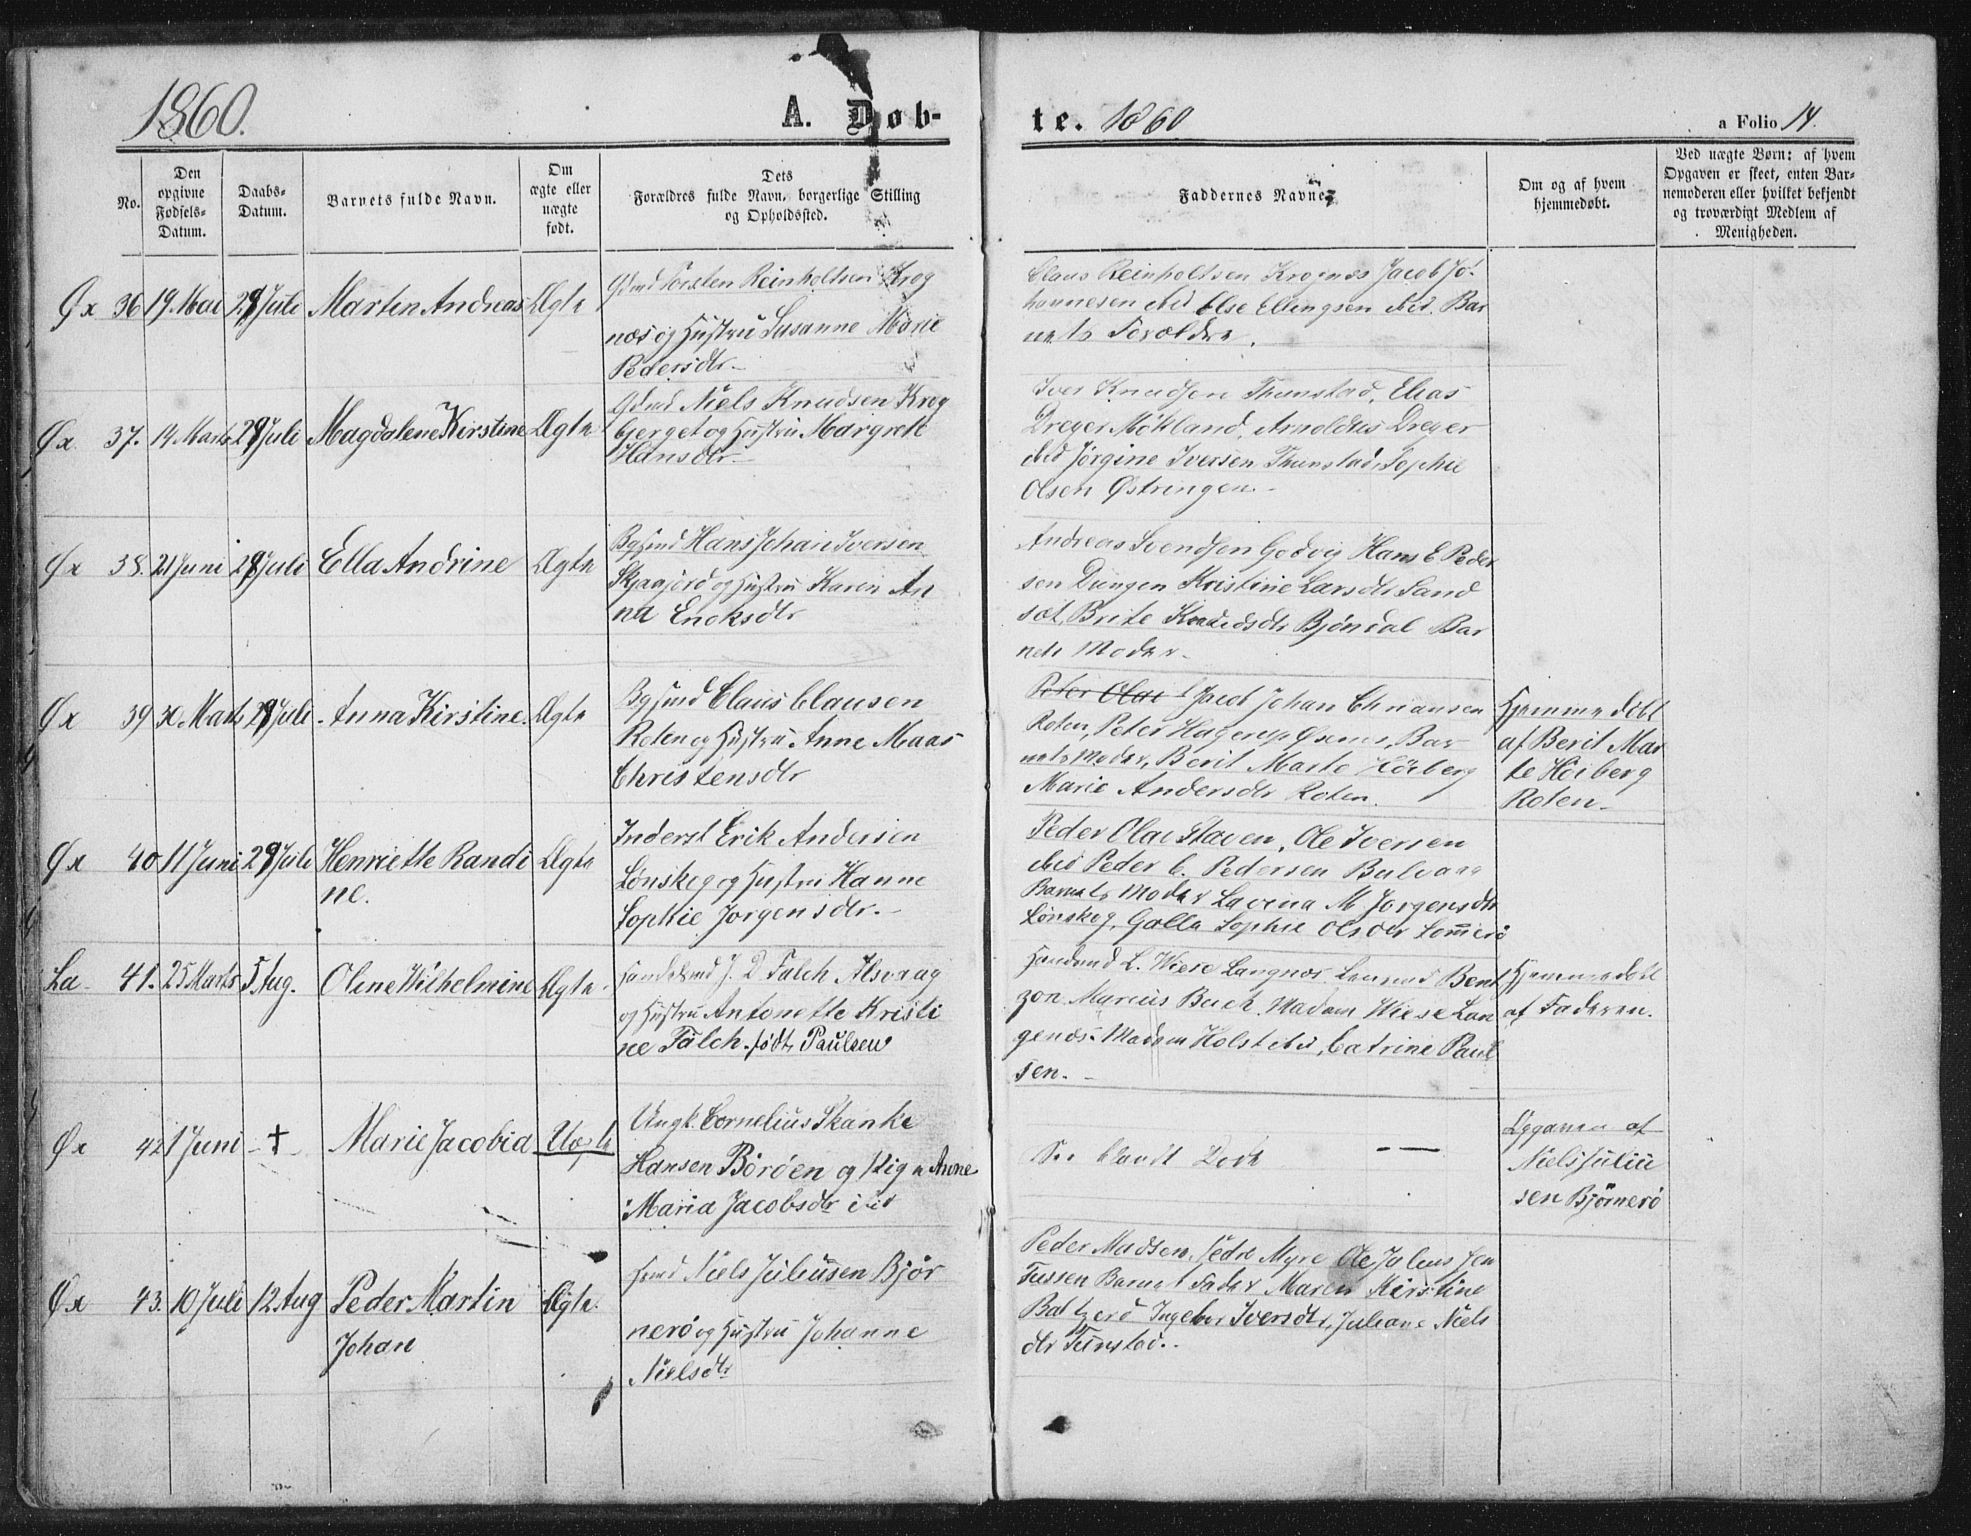 1860.
A. Døb-
te. 1860
a Folio 14.
No.
Den opgivne Fødsels-Datum.
Daabs-Datum.
Barnets fulde Navn.
Om ægte eller uægte født.
Dets Forældres fulde Navn, borgerlige Stilling og Opholdssted.
Faddernes Navne.
Om og af hvem hjemmedøbt.
Ved uægte Børn: af hvem Opgaven er skeet, enten Barnemoderen eller hvilket bekjendt og troværdigt Medlem af Menigheden.
Øx 36 19. Mai 29 Juli Marten Andreas Ægte
Gdmd Torsten Reinholtsen Krog
næs og Hustru Susanne Marie
Pedersdtr
Claus Reinholtsen Krognæs Jacob Jo-
hannesen Ibid Else Ellingsen Ibid. Bar
nets Forældre.
Øx. 37. 14 Marts 29 Juli Magdalene Kirstine Ægte
Gdmd Niels Knudsen Krog
bjerget og Hustru Margrete
Hansdtr
Iver Knudsen Thunstad, Elias
Dreyer Mökland, Arnoldus Dreyer
Ibid Jörgine Iversen Thunstad, Sophie
Olsen Østringen.
Øx 38. 21 Juni 29 Juli Ella Andrine Ægte
Bgsmd Hans Johan Iversen
Skjanjord og Hustru Karen An
na Enoksdtr
Andreas Svendsen Godvig Hans E Peder
sen Dungen Kristine Larsdtr Sand
set, Brite Knudsdtr Bjöndal Bar
nets Moder
Øx 39 30 Marts 29 Juli Anna Kirstine. Ægte
Bgsmd Claus Clausen
Roten og Hustru Anne Maas
Christensdtr
Peter Olai Jacob Johan Chriansen
Roten, Peter Hagerup Øxnes, Bar
nets Moder, Berit Marte Höiberg
Marie Andersdtr Roten.
Hjemmedöbt
af Berit Mar
te Höiberg
Roten
Øx 40 11 Juni 29 Juli Henriette Randi
ne. Ægte
Inderst Erik Andersen
Lönskog og Hustru Hanne
Sophie Jörgensdtr.
Peder Olai Staven, Ole Iversen
Ibid Peder C. Pedersen Bulvaag
Barnets Moder Lavina M Jorgensdtr
Lönskog, Golla Sophie Olsdtr Sommerö
La 41. 25 Marts 5 Aug. Oline Wilhelmine Ægte
Handelsmd J. D Falch, Alsvaag
og Hustru Antonette Kristi
ne Falch, födt Paulsen
Handsmd L. Wiese Langnæs. Bent
zon. Marcus Buch. Madam Wiese Lan
genæs. Madam Holst Ibid, Catrine Paul
sen.
Hjemmedöbt
af Faderen.
Øx 42 1 Juni † Marie Jacobia Uægte
Ungk. Cornelius Skanke
Hansen Böröen og Pige Anne
Maria Jacobsdtr ibid
See blandt Døde
Opgaven af
Niels Juliu
sen Björnerö
Øx 43. 10 Juli 12 Aug Peder Martin
Johan Ægte.
Niels Juliussen Bjør
nerö og Hustru Johanne
Nielsdtr
Peder Madsen. Myre Ole Julius Jen
Tussen Barnets Fader Maren Kirstine
Ingebor Iversdtr, Juliane Niels
dtr Tunstad.